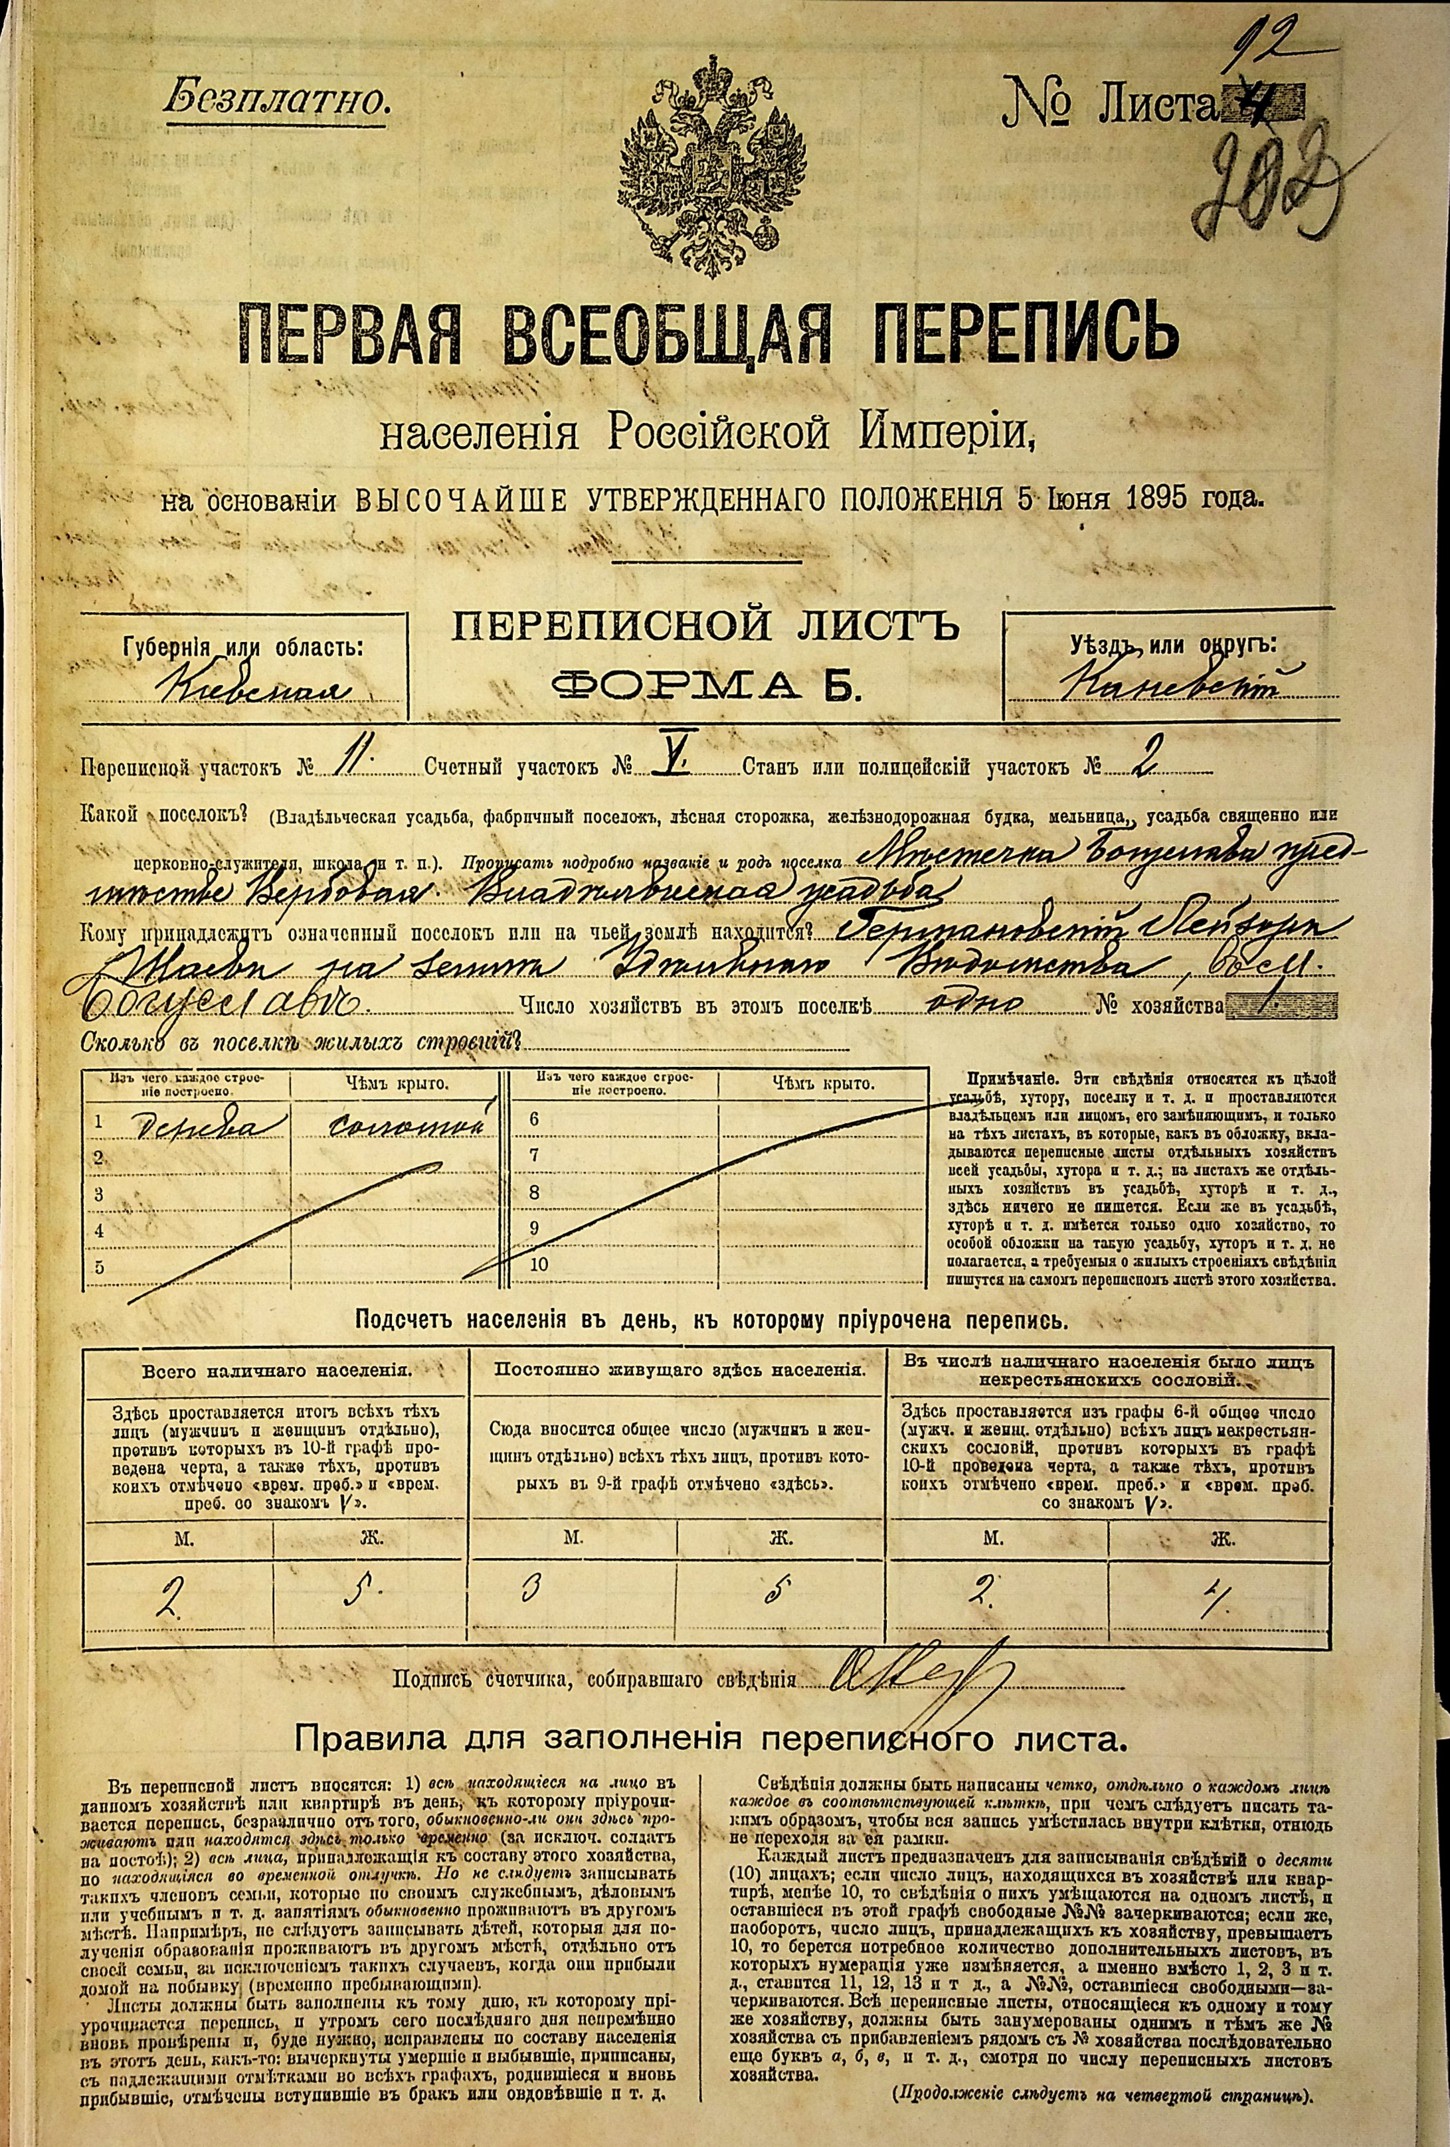 12
Безплатно.
№ Листа 4
202
ПЕРВАЯ ВСЕОБЩАЯ ПЕРЕПИСЬ
населенія Россійской Имперіи,
на основаніи ВЫСОЧАЙШЕ УТВЕРЖДЕННАГО ПОЛОЖЕНІЯ 5 Іюня 1895 года.
ПЕРЕПИСНОЙ ЛИСТЪ
ФОРМА Б.
Губернія или область:
Кіевская
Уѣздъ или округъ:
Каневскій
Переписной участокъ № 11. Счетный участокъ № V. Станъ или полицейскій участокъ № 2
Какой поселокъ? (Владѣльческая усадьба, фабричный поселокъ, лѣсная сторожка, желѣзнодорожная будка, мельница, усадьба священно или
церковно-служителя, школа и т. п.). Прописать подробно названіе и родъ поселка Мѣстечка Богуслава пред-
мѣстье Вербовая. Владѣльческая усадьба
Кому принадлежитъ означенный поселокъ или на чьей землѣ находится? Германовскій Лейзоръ
на земли Удѣльнаго Вѣдомства, въ м.
Богуславѣ. Число хозяйствъ въ этомъ поселкѣ одно № хозяйства 1.
Сколько въ поселкѣ жилыхъ строеній?
Изъ чего каждое строе-
ніе построено.
Чѣмъ крыто.
Изъ чего каждое строе-
ніе построено.
Чѣмъ крыто.
1 дерева соломой
2
3
4
5
6
7
8
9
10
Примѣчаніе. Эти свѣдѣнія относятся къ цѣлой
усадьбѣ, хутору, поселку и т. д. и проставляются
владѣльцемъ или лицомъ, его замѣняющимъ, и только
на тѣхъ листахъ, въ которые, какъ въ обложку, вкла-
дываются переписные листы отдѣльныхъ хозяйствъ
всей усадьбы, хутора и т. д.; на листахъ же отдѣль-
ныхъ хозяйствъ въ усадьбѣ, хуторѣ и т. д.,
здѣсь ничего не пишется. Если же въ усадьбѣ,
хуторѣ и т. д. имѣется только одно хозяйство, то
особой обложки на такую усадьбу, хуторъ и т. д. не
полагается, а требуемыя о жилыхъ строеніяхъ свѣдѣнія
пишутся на самомъ переписномъ листѣ этого хозяйства.
Подсчетъ населенія въ день, къ которому пріурочена перепись.
Всего наличнаго населенія.
Здѣсь проставляется итогъ всѣхъ тѣхъ
лицъ (мужчинъ и женщинъ отдѣльно),
противъ которыхъ въ 10-й графѣ про-
ведена черта, а также тѣхъ, противъ
коихъ отмѣчено «врем. преб.» и «врем.
преб. со знакомъ V».
Постоянно живущаго здѣсь населенія.
Сюда вносится общее число (мужчинъ и жен-
щинъ отдѣльно) всѣхъ тѣхъ лицъ, противъ кото-
рыхъ въ 9-й графѣ отмѣчено «здѣсь».
Въ числѣ наличнаго населенія было лицъ
некрестьянскихъ сословій.
Здѣсь проставляется изъ графы 6-й общее число
(мужч. и женщ. отдѣльно) всѣхъ лицъ некрестьян-
скихъ сословій, противъ которыхъ въ графѣ
10-й проведена черта, а также тѣхъ, противъ
коихъ отмѣчено «врем. преб.» и «врем. преб.
со знакомъ V».
М. Ж. М. Ж. М. Ж.
2. 5. 3 5 2. 4.
Подпись счетчика, собиравшаго свѣдѣнія
Правила для заполненія переписного листа.
Въ переписной листъ вносятся: 1) всѣ находящіеся на лицо въ
данномъ хозяйствѣ или квартирѣ въ день, къ которому пріурочи-
вается перепись, безразлично отъ того, обыкновенно-ли они здѣсь про-
живаютъ или находятся здѣсь только временно (за исключ. солдатъ
на постоѣ); 2) всѣ лица, принадлежащія къ составу этого хозяйства,
но находящіяся во временной отлучкѣ. Но не слѣдуетъ записывать
такихъ членовъ семьи, которые по своимъ служебнымъ, дѣловымъ
или учебнымъ и т. д. занятіямъ обыкновенно проживаютъ въ другомъ
мѣстѣ. Напримѣръ, не слѣдуетъ записывать дѣтей, которыя для по-
лученія образованія проживаютъ въ другомъ мѣстѣ, отдѣльно отъ
своей семьи, за исключеніемъ такихъ случаевъ, когда они прибыли
домой на побывку (временно пребывающими).
Листы должны быть заполнены къ тому дню, къ которому прі-
урочивается перепись, и утромъ сего послѣдняго дня непремѣнно
вновь провѣрены и, буде нужно, исправлены по составу населенія
въ этотъ день, какъ-то: вычеркнуты умершіе и выбывшіе, приписаны,
съ надлежащими отмѣтками во всѣхъ графахъ, родившіеся и вновь
прибывшіе, отмѣчены вступившіе въ бракъ или овдовѣвшіе и т. д.
Свѣдѣнія должны быть написаны четко, отдѣльно о каждомъ лицѣ
каждое въ соотвѣтствующей клѣткѣ, при чемъ слѣдуетъ писать та-
кимъ образомъ, чтобы вся запись умѣстилась внутри клѣтки, отнюдь
не переходя за ея рамки.
Каждый листъ предназначенъ для записыванія свѣдѣній о десяти
(10) лицахъ; если число лицъ, находящихся въ хозяйствѣ или квар-
тирѣ, менѣе 10, то свѣдѣнія о нихъ умѣщаются на одномъ листѣ, и
оставшіеся въ этой графѣ свободные №№ зачеркиваются; если же,
наоборотъ, число лицъ, принадлежащихъ къ хозяйству, превышаетъ
10, то берется потребное количество дополнительныхъ листовъ, въ
которыхъ нумерація уже измѣняется, а именно вмѣсто 1, 2, 3 и т.
д., ставится 11, 12, 13 и т д., а №№, оставшіеся свободными—за-
черкиваются. Всѣ переписные листы, относящіеся къ одному и тому
же хозяйству, должны быть занумерованы однимъ и тѣмъ же №
хозяйства съ прибавленіемъ рядомъ съ № хозяйства послѣдовательно
еще буквъ а, б, в, и т. д., смотря по числу переписныхъ листовъ
хозяйства.
(Продолженіе слѣдуетъ на четвертой страницѣ).